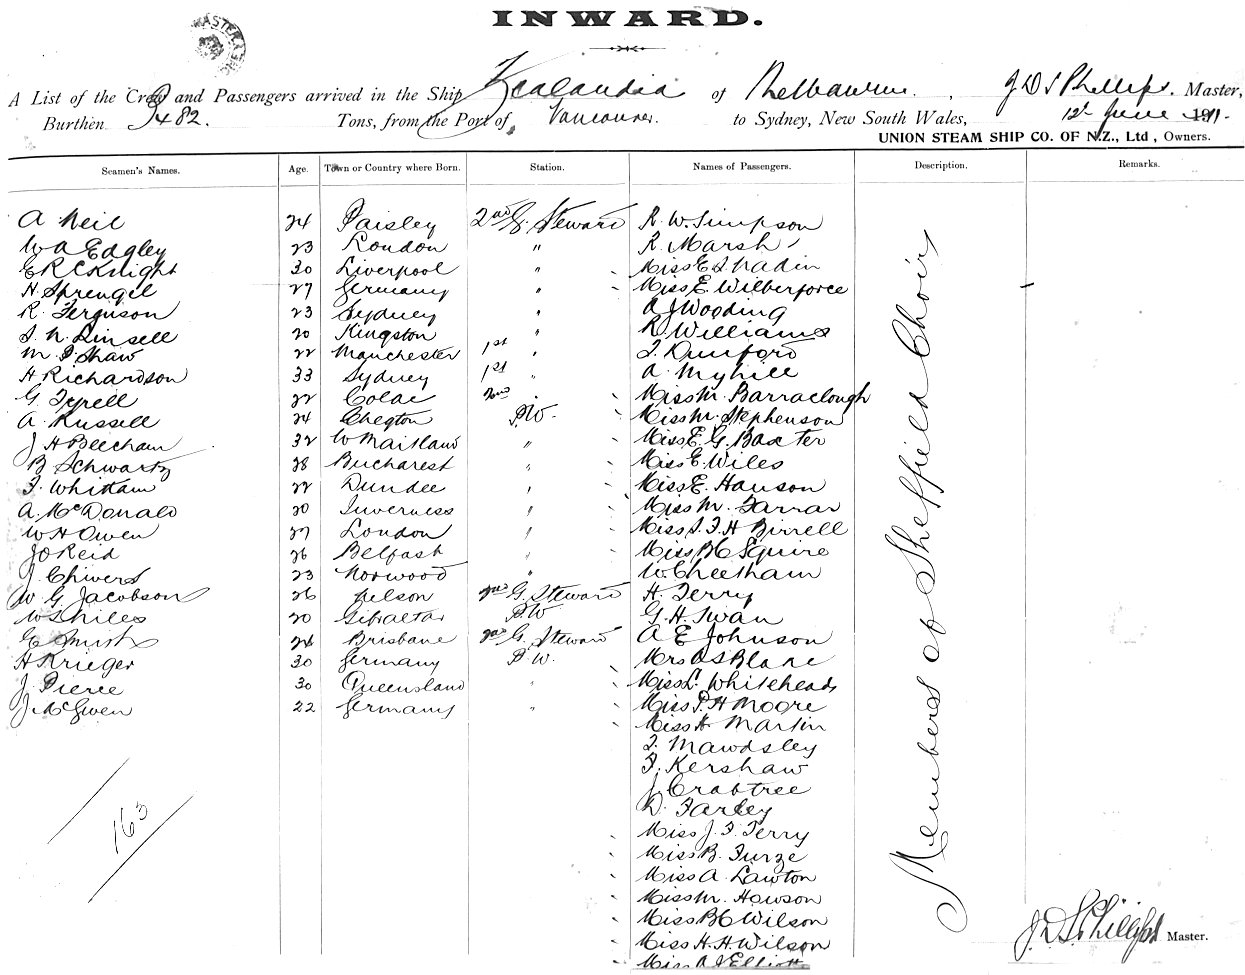 INWARD.
A List of the Crew and Passengers arrived in the Ship Zealandia of Melbourne, J D S Phillips. Master,
Burthen 3482. Tons, from the Port of Vancouver to Sydney, New South Wales, 12th June 1911.
UNION STEAM SHIP CO. OF N.Z., Ltd, Owners.
Seamen's Names. Age. Town or Country where Born. Station. Names of Passengers. Description. Remarks.
A Neil 24 Paisley 2nd G. Steward R. W. Simpson
W A Edgley 23 London " R. Marsh
E R C Knight 30 Liverpool " Miss E. S. Nadin
H. Sprengel 27 Germany " Miss E. Wilberforce
R. Ferguson 23 Sydney " A J Wooding
S. N. Linsell 20 Kingston " R. Williams
M. J. Shaw 22 Manchester 1st " T. Dunford
H Richardson 33 Sydney 1st " A. Myhill
G Tyrell 22 Colac 2nd " Miss M. Barraclough
A. Russell 24 P.W. Miss M. Stephenson
J H Beecham 32 W Maitland " Miss E. G. Baxter
B Schwartz 28 Bucharest " Miss E. Wiles
F. Whittam 22 Dundee " Miss E. Hanson
A. McDonald 20 Inverness " Miss M. Farrar
W H Owen 27 London " Miss S. F. H Birrell
J O Reid 26 Belfast " Miss B C Squire
J. Chivers 23 Norwood " W. Cheetham
W G Jacobson 26 Nelson 2nd G. Steward H. Terry
W S Hiles 20 Gibraltar P.W G. H. Swan
G Smith 24 Brisbane 2nd G. Steward A E Johnson
H Krieger 30 Germany P.W. Mrs A S Blane
J. Pierce 30 Queensland " Miss L. Whitehead
J. McGwen 22 Germany " Miss P. H Moore
Miss A Martin
T. Mawdsley
F. Kershaw
J. Crabtree
D. Farley
Miss J. F. Terry
Miss B. Furze
Miss A Lawton
Miss M. Howson
Miss B C Wilson
Miss H. H. Wilson
Miss A J Elliott
Members of Sheffield Choir
163
J. D. S. Phillips Master.